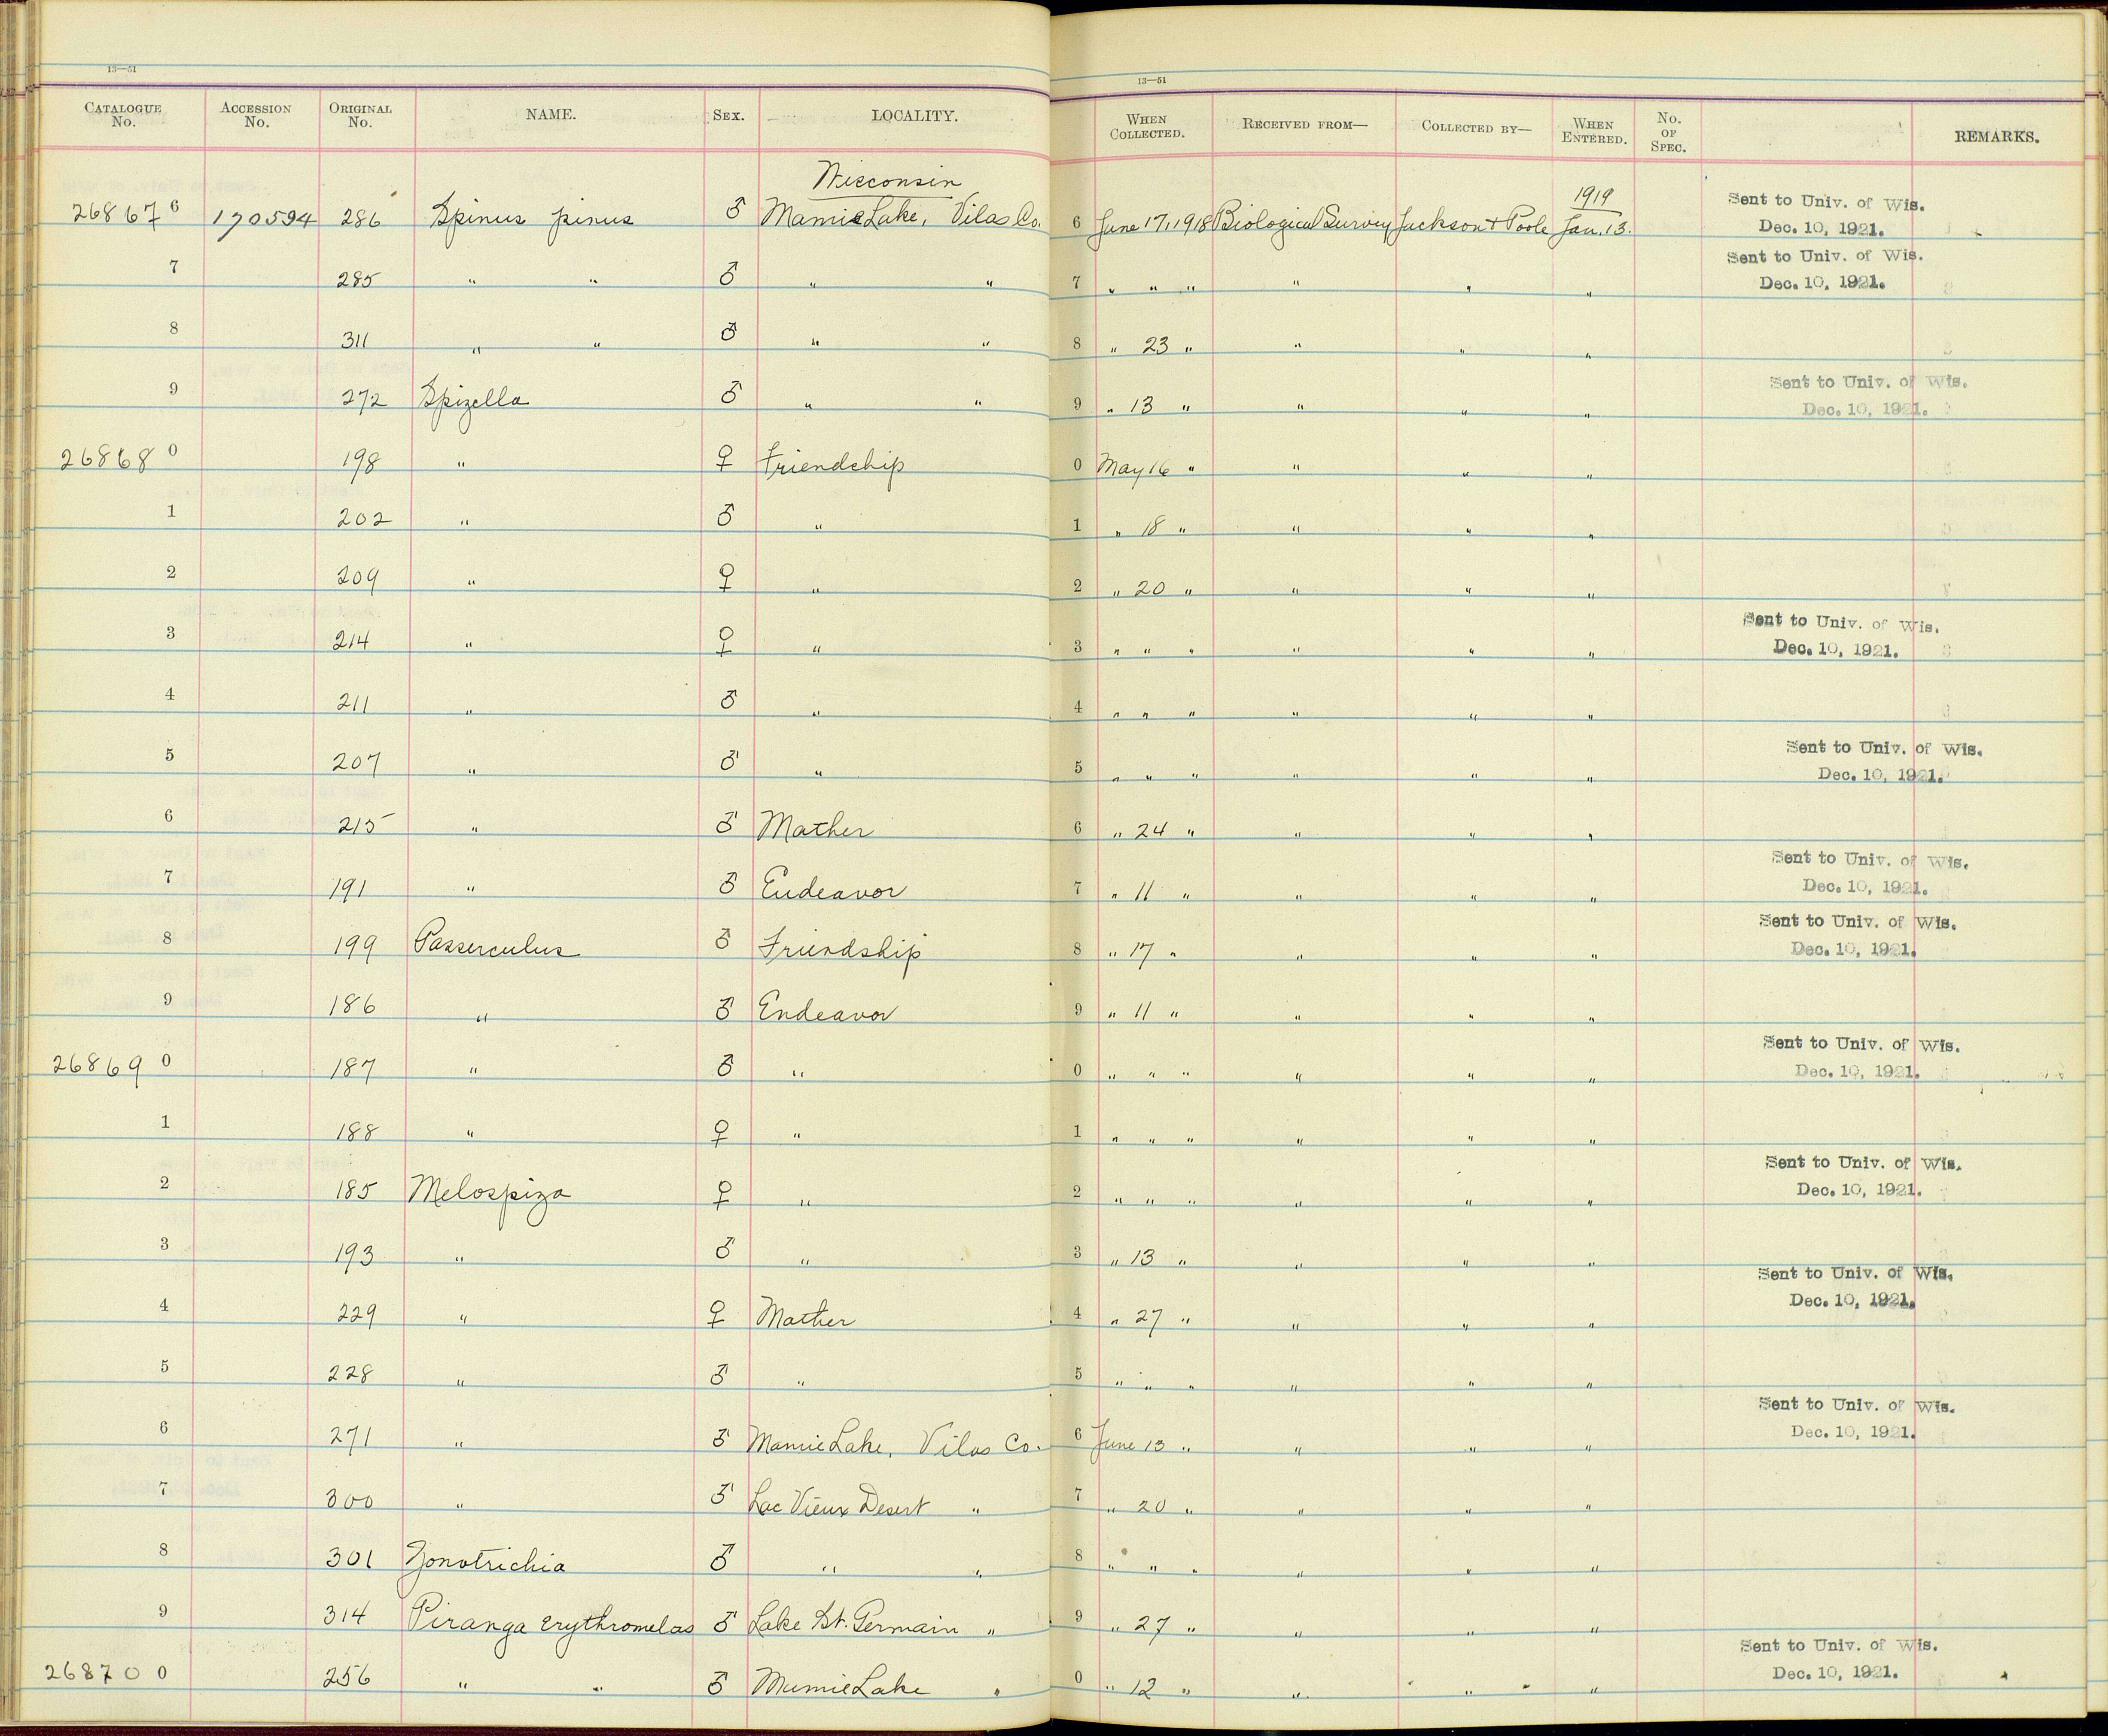 13—51 13—51
CATALOGUE No. ACCESSION No. ORIGINAL No. NAME. SEX. LOCALITY. WHEN COLLECTED. RECEIVED FROM— COLLECTED BY— WHEN ENTERED. No. OF SPEC. REMARKS.
Wisconsin 1919
268676 170594 286 Spinus pinus ♂ Mamie Lake, Vilas Co. 6 June 17, 1918 Biological Survey Jackson & Poole Jan. 13. Sent to Univ. of Wis. Dec. 10, 1921.
7 285 " " ♂ " " 7 " " " " " " Sent to Univ. of Wis. Dec. 10, 1921.
8 311 " " ♂ " " 8 " 23 " " " "
9 272 Spizella ♂ " " 9 " 13 " " " " Sent to Univ. of Wis. Dec. 10, 1921.
268680 198 " ♀ Friendship 0 May 16 " " " "
1 202 " ♂ " 1 " 18 " " " "
2 209 " ♀ " 2 " 20 " " " "
3 214 " ♀ " 3 " " " " " " Sent to Univ. of Wis. Dec. 10, 1921.
4 211 " ♂ " 4 " " " " " "
5 207 " ♂ " 5 " " " " " " Sent to Univ. of Wis. Dec. 10, 1921.
6 215 " ♂ Mather 6 " 24 " " " "
7 191 " ♂ Endeavor 7 " 11 " " " " Sent to Univ. of Wis. Dec. 10, 1921.
8 199 Passerculus ♂ Friendship 8 " 17 " " " " Sent to Univ. of Wis. Dec. 10, 1921.
9 186 " ♂ Endeavor 9 " 11 " " " "
268690 187 " ♂ " 0 " " " " " " Sent to Univ. of Wis. Dec. 10, 1921.
1 188 " ♀ " 1 " " " " " "
2 185 Melospiza ♀ " 2 " " " " " " Sent to Univ. of Wis. Dec. 10, 1921.
3 193 " ♂ " 3 " 13 " " " "
4 229 " ♀ Mather 4 " 27 " " " " Sent to Univ. of Wis. Dec. 10, 1921.
5 228 " ♂ " 5 " " " " " "
6 271 " ♂ Mamie Lake, Vilas Co. 6 June 13 " " " " Sent to Univ. of Wis. Dec. 10, 1921.
7 300 " ♂ Lac Vieux Desert " 7 " 20 " " " "
8 301 Zonotrichia ♂ " " 8 " " " " " "
9 314 Piranga erythromelas ♂ Lake St. Germain " 9 " 27 " " " "
268700 256 " " ♂ Mamie Lake " 0 " 12 " " " " Sent to Univ. of Wis. Dec. 10, 1921.